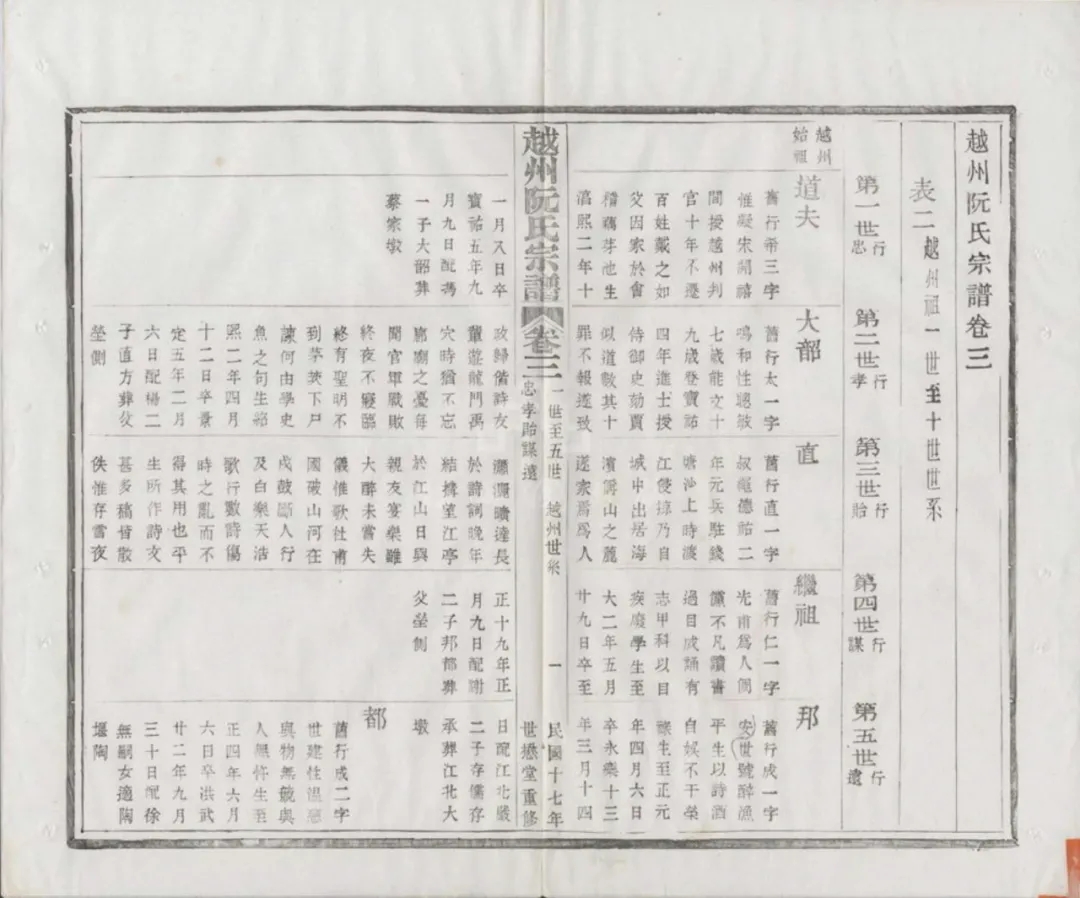 越州阮氏宗譜卷三
表二越州祖一世至十世世系
第一世忠行
第二世孝行
第三世貽行
第四世謀行
第五世遠行
越州始祖
道夫
舊行帝三字
惟凝宋開禧
間授越州判
官十年不遷
百姓戴之如
父因家於會
稽藕芽池生
淳熙二年十
一月入日卒
寶祐五年九
月九日配馮
一子大韶葬
蔡家墩
大韶
舊行太一字
鳴和性聰敏
七歲能文十
九歲登寶祐
四年進士授
侍御史劾賈
似道數其十
罪不報遂致
政歸偕詩友
輩遊龍門禹
穴時猶不忘
廊廟之憂每
聞官軍戰敗
終夜不寢臨
終有聖明不
到茅茨下尸
諫何由學史
魚之句生紹
熙二年四月
十二日卒景
定五年二月
六日配楊二
子直方葬父
塋側
直
舊行直一字
叔黿德祐二
年元兵駐錢
塘沙上時渡
江侵掠乃自
城中出居海
濱壽山之麓
遂家焉爲人
瀟灑曠達長
於詩詞晚年
結構望江亭
於江山日與
親友宴樂雖
大醉未嘗失
儀惟歌杜甫
國破山河在
戍鼓斷人行
及白樂天浩
歌行數詩傷
時之亂而不
得其用也平
生所作詩文
甚多稿皆散
佚惟存雪夜
繼祖
舊行仁一字
光甫爲人倜
儻不凡讀書
過目成誦有
志甲科以目
疾廢學生至
大二年五月
廿九日卒至
正十九年正
月九日配謝
二子邦都葬
父塋側
邦
舊行成一字
安世號醉漁
平生以詩酒
自娛不干榮
祿生至正元
年四月六日
卒永樂十三
年三月十四
日配江北嚴
二子存儒存
承葬江北大
墩
都
舊行成二字
世建性温慈
與物無競與
人無忤生至
正四年六月
六日卒洪武
廿二年九月
三十日配徐
無嗣女適陶
堰陶
越州阮氏宗譜 卷三
一世至五世 越州世系
忠孝貽謀遠
一
民國十七年
世懋堂重修